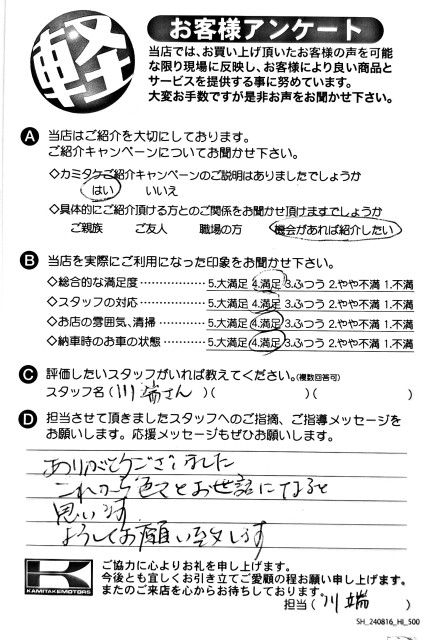 軽
お客様アンケート
当店では、お買い上げ頂いたお客様の声を可能
な限り現場に反映し、お客様により良い商品と
サービスを提供する事に努めています。
大変お手数ですが是非お声をお聞かせ下さい。
A 当店はご紹介を大切にしております。
ご紹介キャンペーンについてお聞かせ下さい。
◇カミタケご紹介キャンペーンのご説明はありましたでしょうか
はい いいえ
◇具体的にご紹介頂ける方とのご関係をお聞かせ頂けますでしょうか
ご親族 ご友人 職場の方 機会があれば紹介したい
B 当店を実際にご利用になった印象をお聞かせ下さい。
◇総合的な満足度 …………… 5.大満足 4.満足 3.ふつう 2.やや不満 1.不満
◇スタッフの対応 …………… 5.大満足 4.満足 3.ふつう 2.やや不満 1.不満
◇お店の雰囲気、清掃 ………… 5.大満足 4.満足 3.ふつう 2.やや不満 1.不満
◇納車時のお車の状態 ………… 5.大満足 4.満足 3.ふつう 2.やや不満 1.不満
C 評価したいスタッフがいれば教えてください。(複数回答可)
スタッフ名 (川端さん)( )( )
D 担当させて頂きましたスタッフへのご指摘、ご指導メッセージを
お願いします。応援メッセージもぜひお願いします。
ありがとうございました
これから色々とお世話になると
思います
よろしくお願い致します
KAMITAKE MOTORS
ご協力に心よりお礼を申し上げます。
今後とも宜しくお引き立てご愛顧の程お願い申し上げます。
またのご来店を心からお待ちしております。
担当 (川端)
SH_240816_HI_500